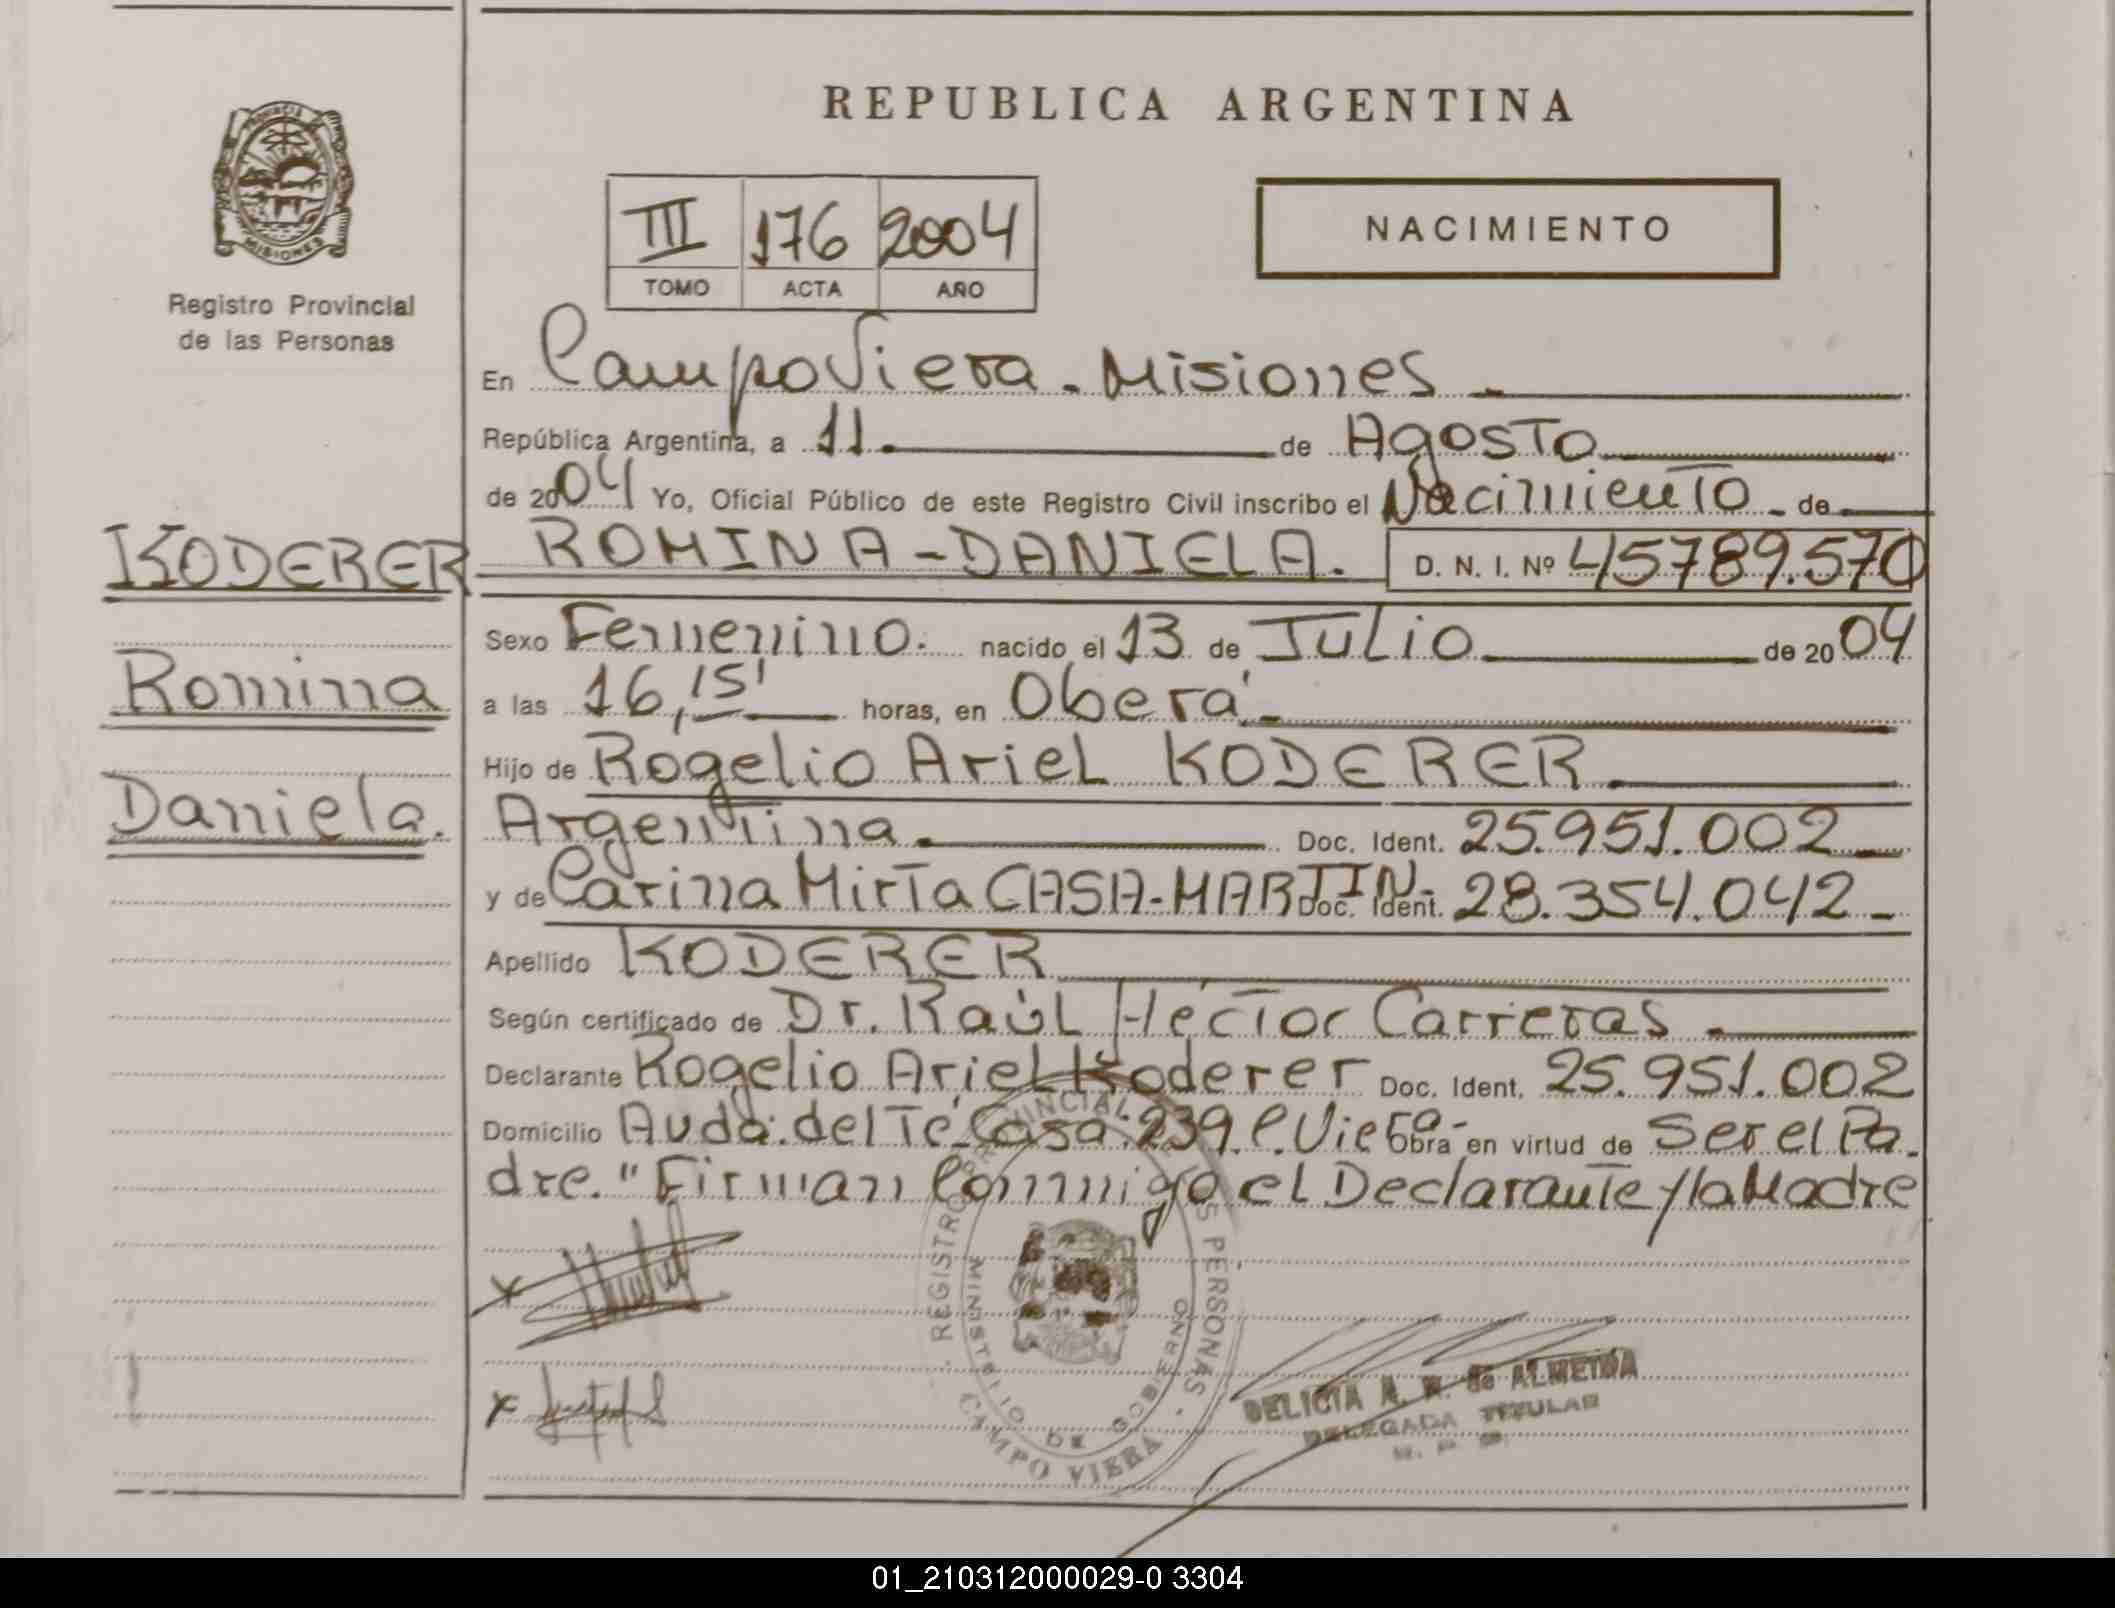 REPUBLICA ARGENTINA
PROVINCIA
MISIONES
Registro Provincial
de las Personas
III 176 2004
TOMO ACTA AÑO
NACIMIENTO
En Campo Viera - Misiones -
República Argentina, a 11 de Agosto
de 2004 Yo, Oficial Público de este Registro Civil inscribo el Nacimiento - de
KODERER
Romina
Daniela.
ROMINA - DANIELA. D. N. I. Nº 45789.570
Sexo Femenino. nacido el 13 de Julio de 2004
a las 16,15' horas, en Oberá -
Hijo de Rogelio Ariel KODERER
Argentina. Doc. Ident. 25.951.002
y de Carina Mirta CASA-MARTIN- Doc. Ident. 28.354.042 -
Apellido KODERER
Según certificado de Dr. Raúl Héctor Carreras
Declarante Rogelio Ariel Koderer Doc. Ident. 25.951.002
Domicilio Avda. del Té Casa: 239. C. Viera - Obra en virtud de Ser el Pa-
dre. "Firman Conmigo el Declarante y la Madre
x
x
REGISTRO PROVINCIAL DE LAS PERSONAS
MINISTERIO DE GOBIERNO
CAMPO VIERA
DELICIA A. de ALMEIDA
DELEGADA TITULAR
01_210312000029-0 3304